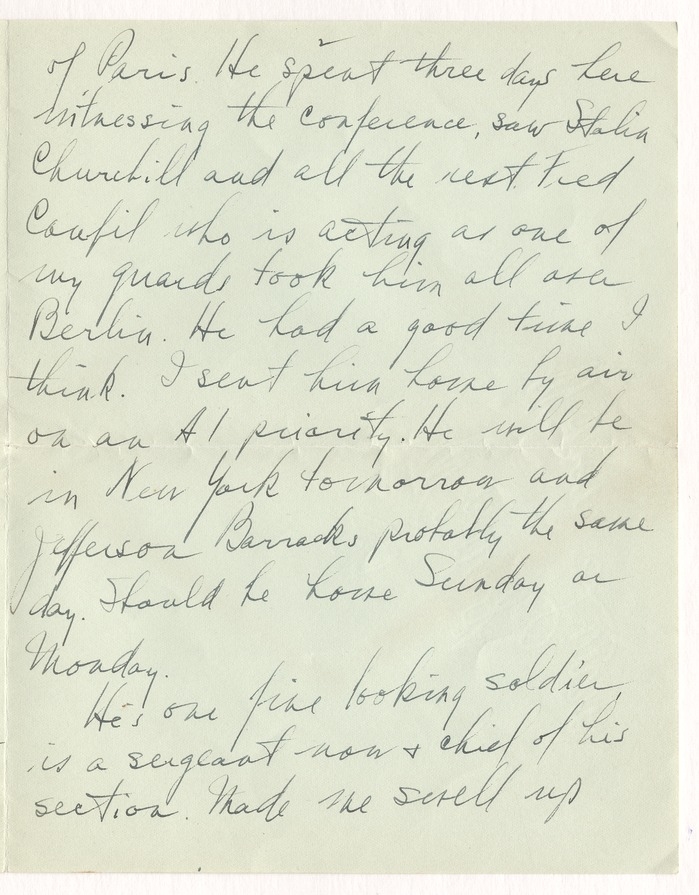 of Paris. He spent three days here
witnessing the conference, saw Stalin
Churchill and all the rest. Fred
Canfil who is acting as one of
my guards took him all over
Berlin. He had a good time I
think. I sent him home by air
on an A1 priority. He will be
in New York tomorrow and
Jefferson Barracks probably the same
day. Should be home Sunday or
Monday.
He's one fine looking soldier,
is a sergeant now & chief of his
section. Made me swell up